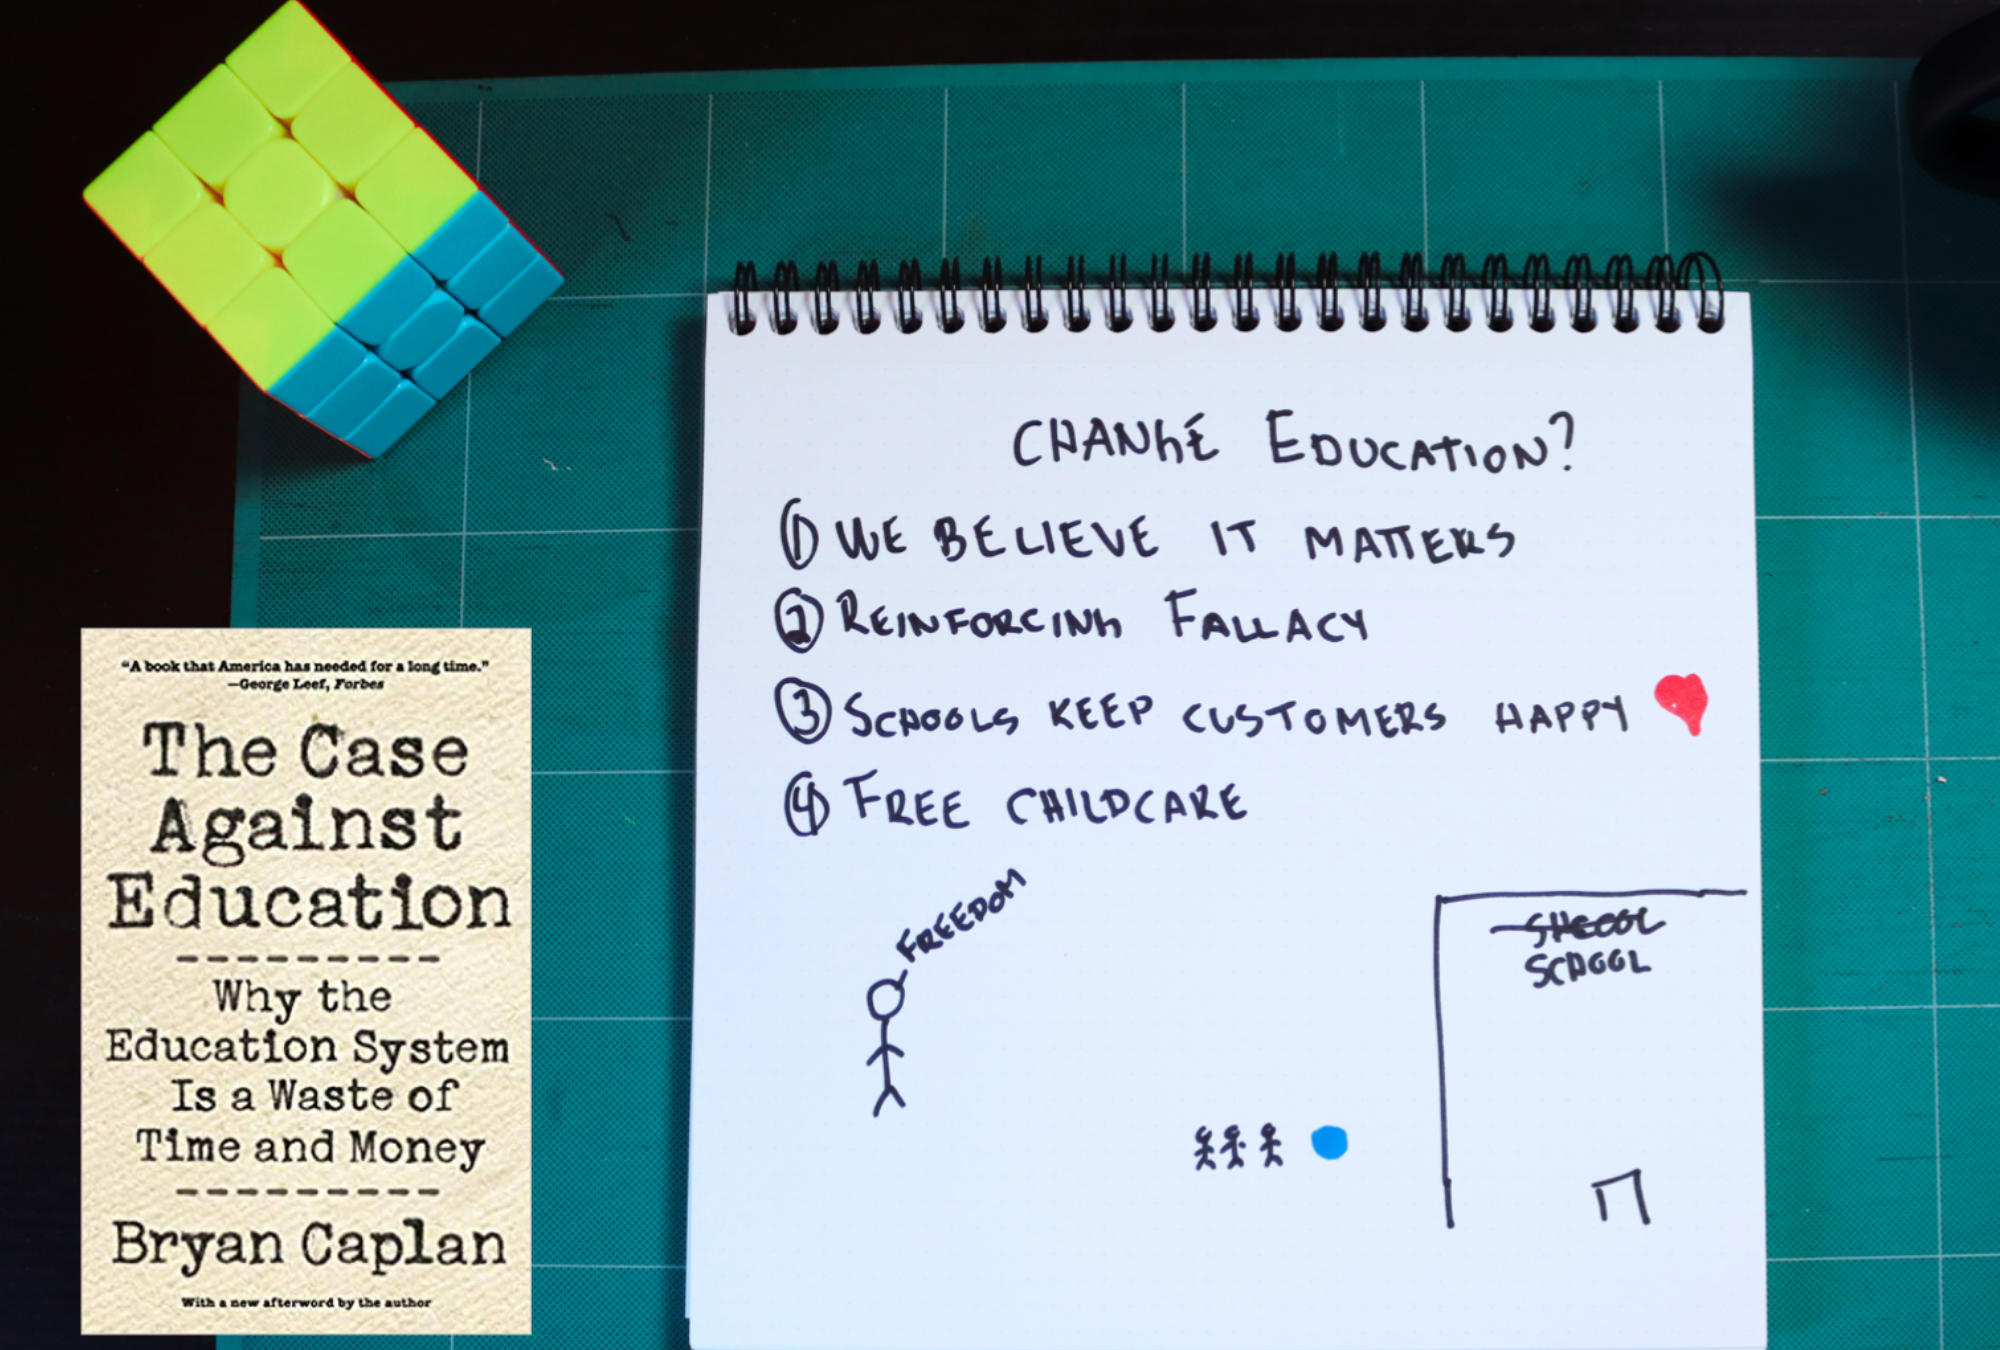 "A book that America has needed for a long time."
—George Leef, Forbes
The Case
Against
Education
Why the
Education System
Is a Waste of
Time and Money
Bryan Caplan
With a new afterword by the author
CHANGE EDUCATION?
① WE BELIEVE IT MATTERS
② REINFORCING FALLACY
③ SCHOOLS KEEP CUSTOMERS HAPPY
④ FREE CHILDCARE
FREEDOM
SHCOOL
SCHOOL